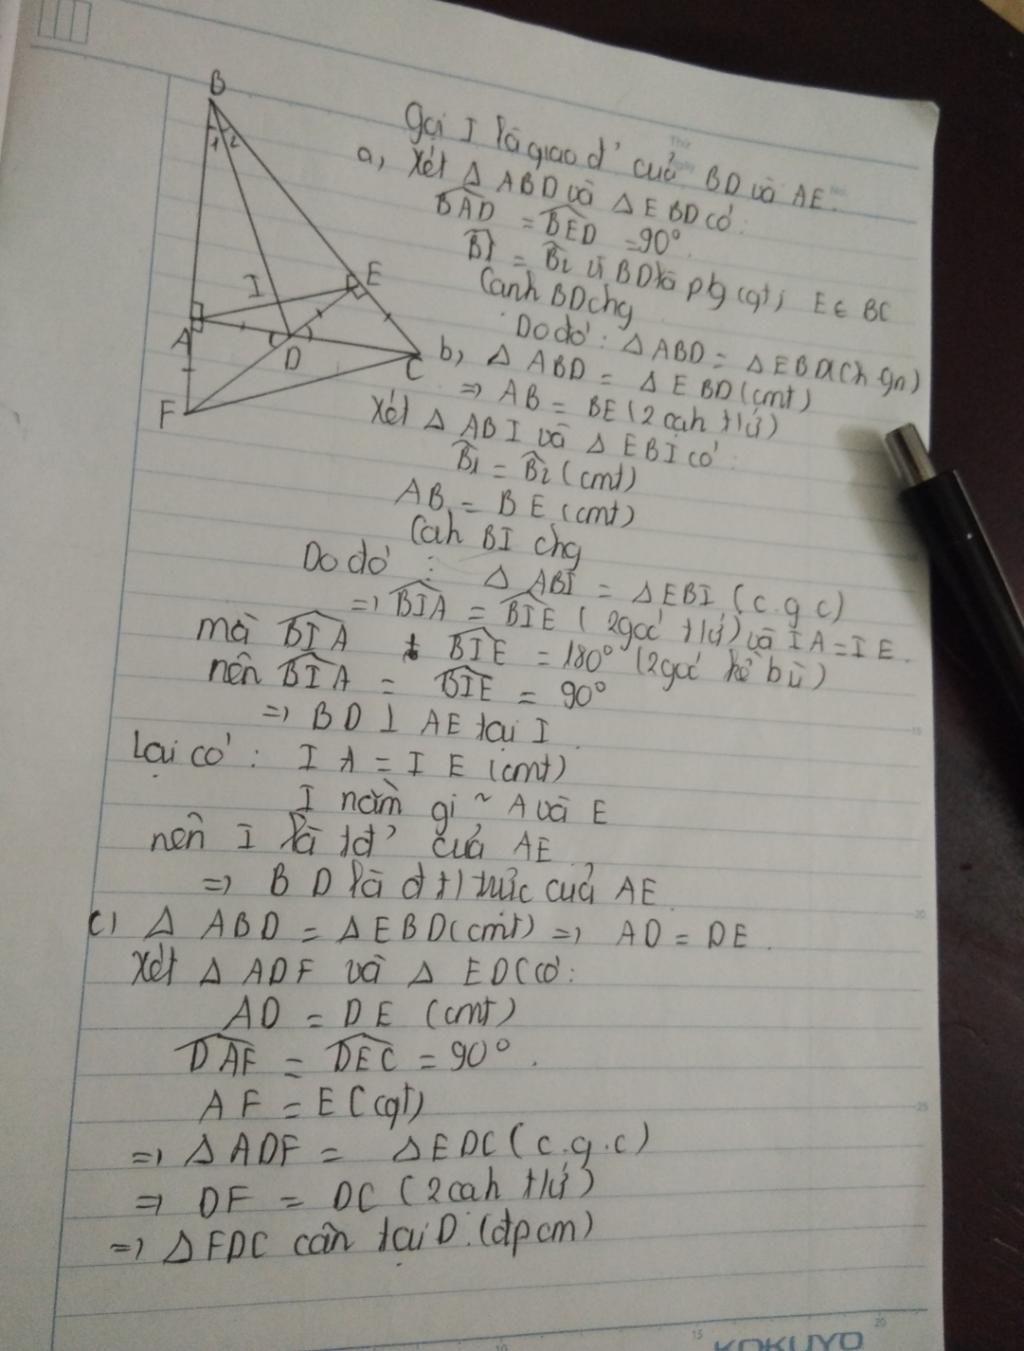 B
1 2
I
E
A
D
C
F
Gọi I là giao đ' của BD và AE.
a, Xét Δ ABD và Δ EBD có:
BAD = BED = 90°
B1 = B2 vì BD là pfg (gt), E ∈ BC
Cạnh BD chg
Do đó: Δ ABD = Δ EBD (ch gn)
b, Δ ABD = Δ EBD (cmt)
=> AB = BE (2 cah tứ)
Xét Δ ABI và Δ EBI có:
B1 = B2 (cmt)
AB = BE (cmt)
Cah BI chg
Do đó: Δ ABI = Δ EBI (c.g.c)
=> BIA = BIE (2 góc tứ) và IA = IE.
mà BIA + BIE = 180° (2 góc kề bù)
nên BIA = BIE = 90°
=> BD ⊥ AE tại I.
Lại có: IA = IE (cmt)
I nằm gi~ A và E
nên I là tđ' của AE
=> BD là đ t) trực của AE
c) Δ ABD = Δ EBD (cmt) => AD = DE.
Xét Δ ADF và Δ EDC có:
AD = DE (cmt)
DAF = DEC = 90°.
AF = EC (gt)
=> Δ ADF = Δ EDC (c.g.c)
=> DF = DC (2 cah tứ)
=> Δ FDC cân tại D. (đpcm)
15
20
25
10 15 20
KOKUYO